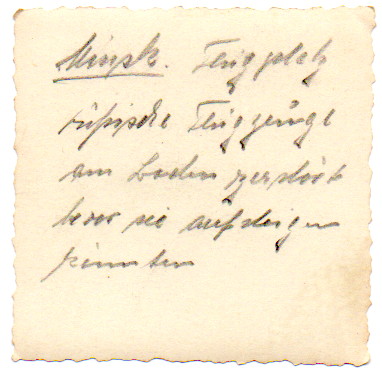 Minsk. Flugplatz
rußische Flugzeuge
am Boden zerstört
bevor sie aufsteigen
konnten